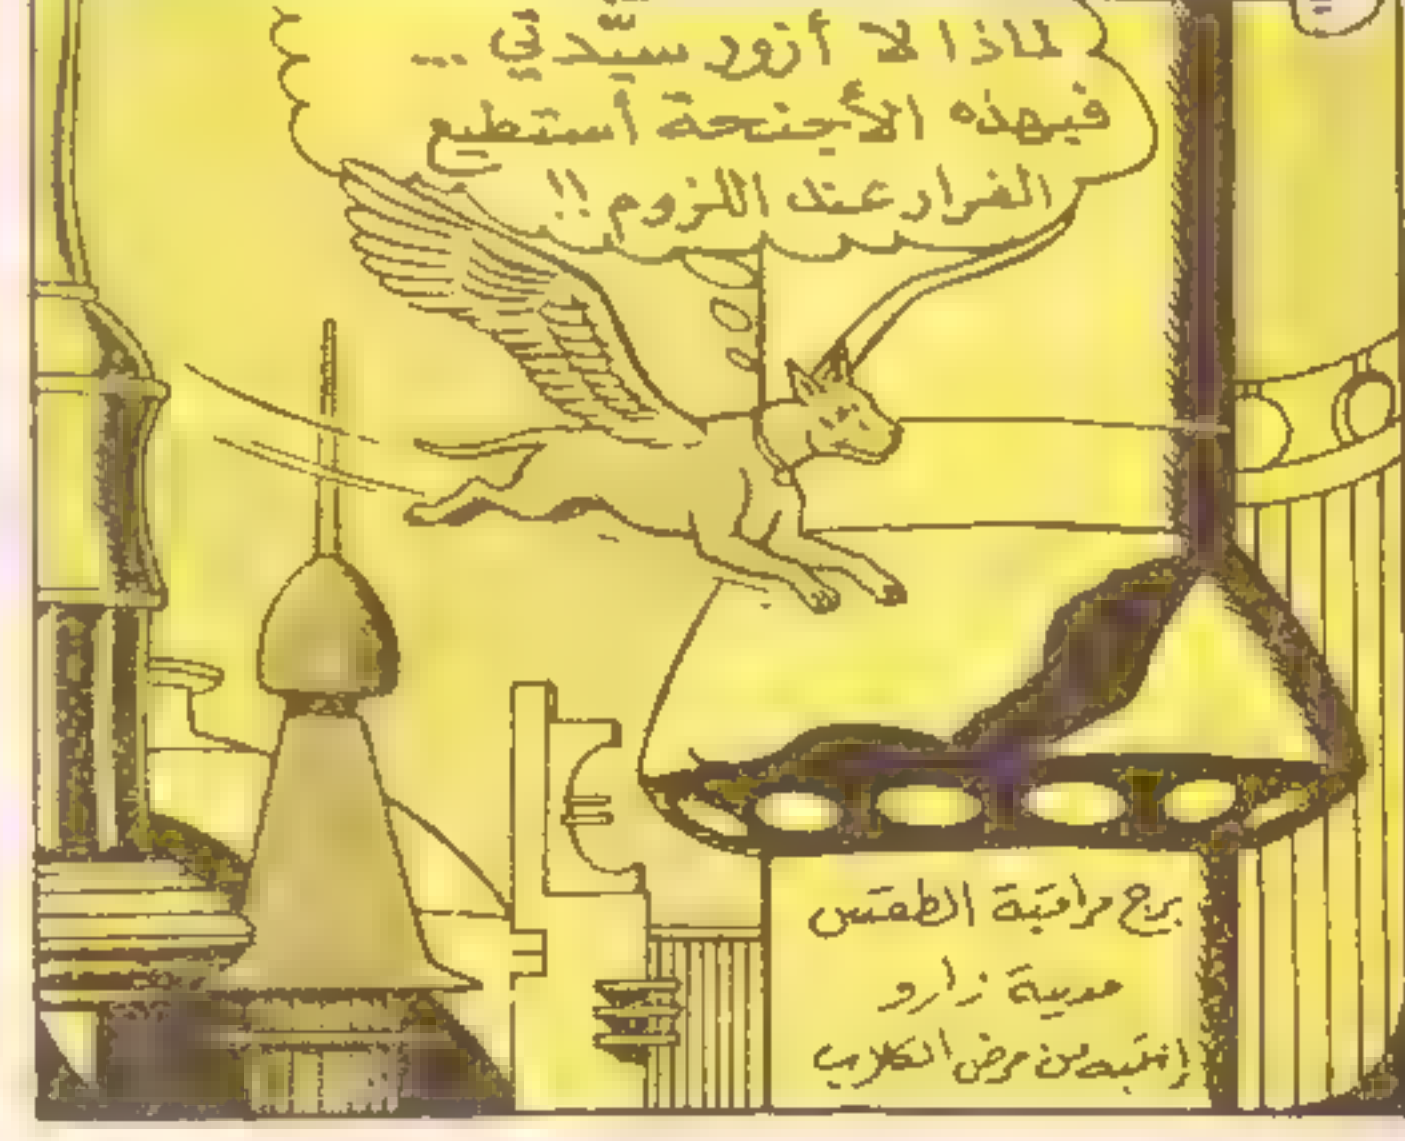 لماذا لا أزور سيّدتي ...
فبهذه الأجنحة أستطيع
الفرار عند اللزوم !!
برج مراقبة الطقس
مدينة زارو
إنتبه من مرض الكلاب